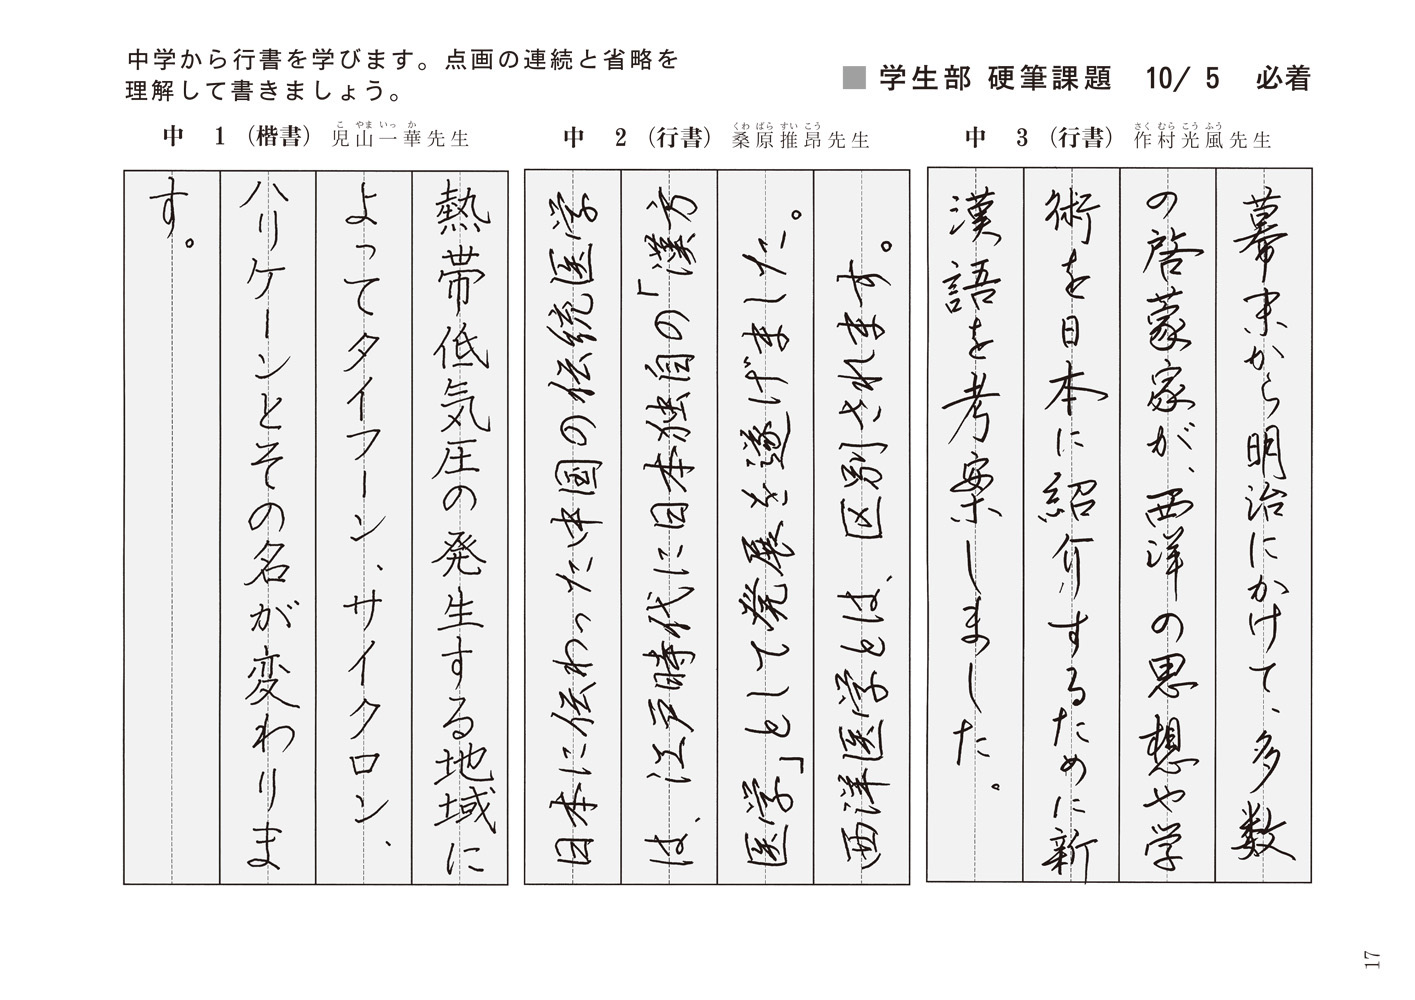 中学から行書を学びます。点画の連続と省略を
理解して書きましょう。
■ 学生部 硬筆課題 10/ 5 必着
中 3 （行書） 作村光風先生
さく むら こう ふう
幕末から明治にかけて、多数
の啓蒙家が、西洋の思想や学
術を日本に紹介するために新
漢語を考案しました。
中 2 （行書） 桑原推昂先生
くわ ばら すい こう
日本に伝わった中国の伝統医学
は、江戸時代に日本独自の「漢方
医学」として発展を遂げました。
西洋医学とは、区別されます。
中 1 （楷書） 児山一華先生
こ やま いっ か
熱帯低気圧の発生する地域に
よってタイフーン、サイクロン、
ハリケーンとその名が変わりま
す。
17